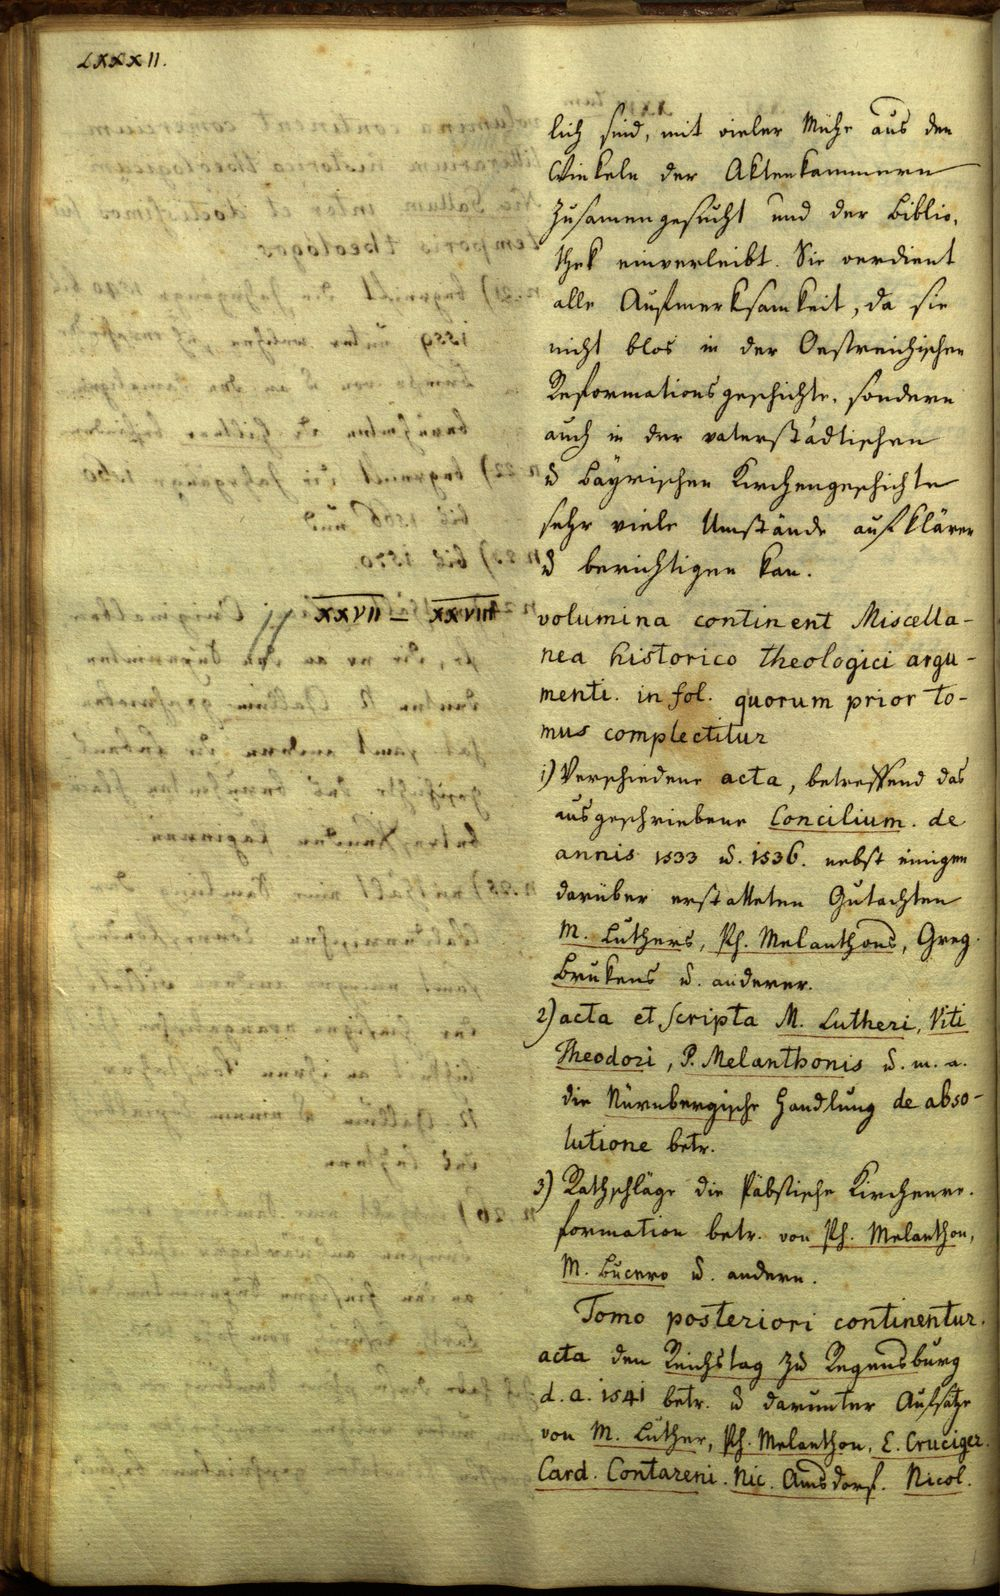 LXXXII.
lich sind, mit vieler Mühe aus den
Winkeln der Aktenkammern
zusamengesucht und der Biblio-
thek einverleibt. Sie verdient
alle Aufmerksamkeit, da sie
nicht blos in der Oestreichischen
Reformationsgeschichte, sondern
auch in der vaterstädtischen
u Bayrischen Kirchengeschichte
sehr viele Umstände aufklären
u berichtigen kan.
XXVII – XXVIII volumina continent Miscella-
nea historico theologici argu-
menti. in fol. quorum prior to-
mus complectitur
1) Verschiedene acta, betreffend das
ausgeschriebene Concilium. de
annis 1533 u. 1536. nebst einigen
darüber erstatteten Gutachten
M. Luthers, Ph. Melanthons, Greg.
Brukens u. anderer.
2) acta et scripta M. Lutheri, Viti
Theodori, P. Melanthonis u. m. a.
die Nürnbergische Handlung de abso-
lutione betr.
3) Rathschläge die Päbstische Kirchenre-
formation betr. von Ph. Melanthon,
M. Bucero u. andern.
Tomo posteriori continentur.
acta den Reichstag zu Regensburg
d. a. 1541 betr. u darunter Aufsätze
von M. Luther, Ph. Melanthon, C. Cruciger.
Card. Contareni. Nic. Amsdorf. Nicol.